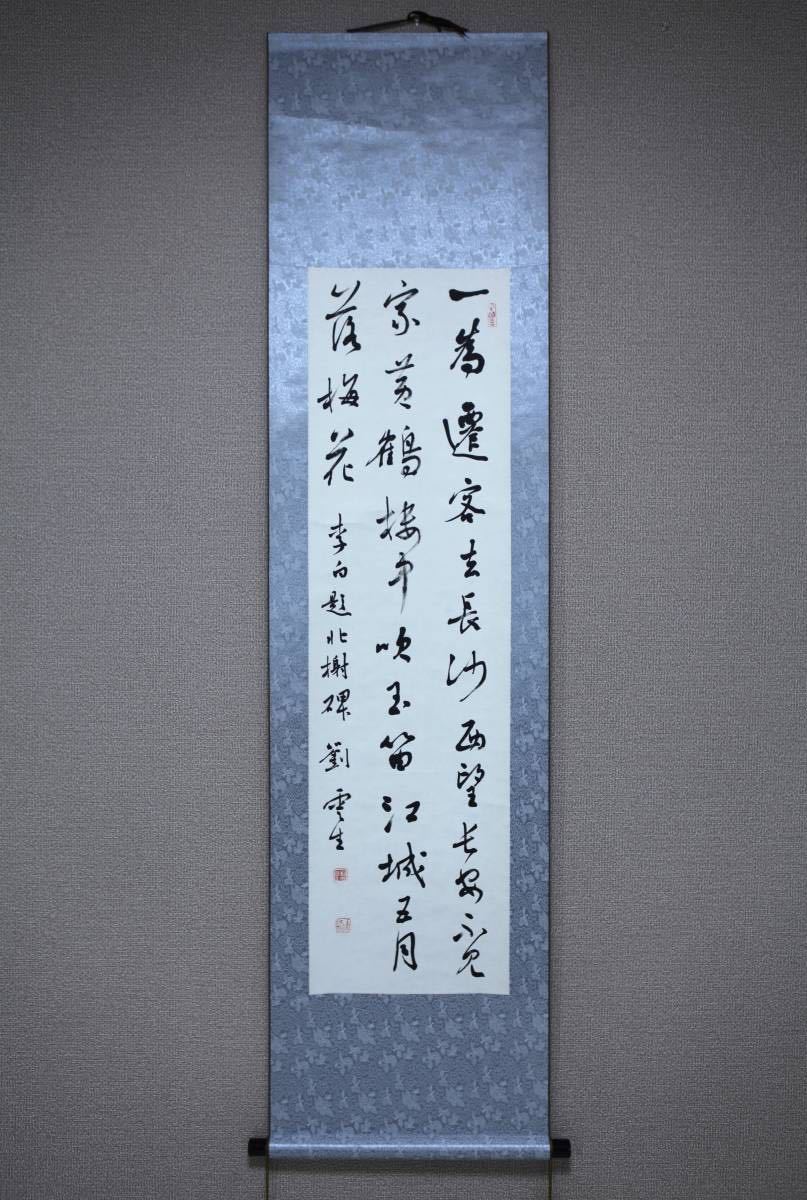 一為遷客去長沙西望長安不見
家黃鶴樓中吹玉笛江城五月
落梅花 李白題北榭碑 劉雲生